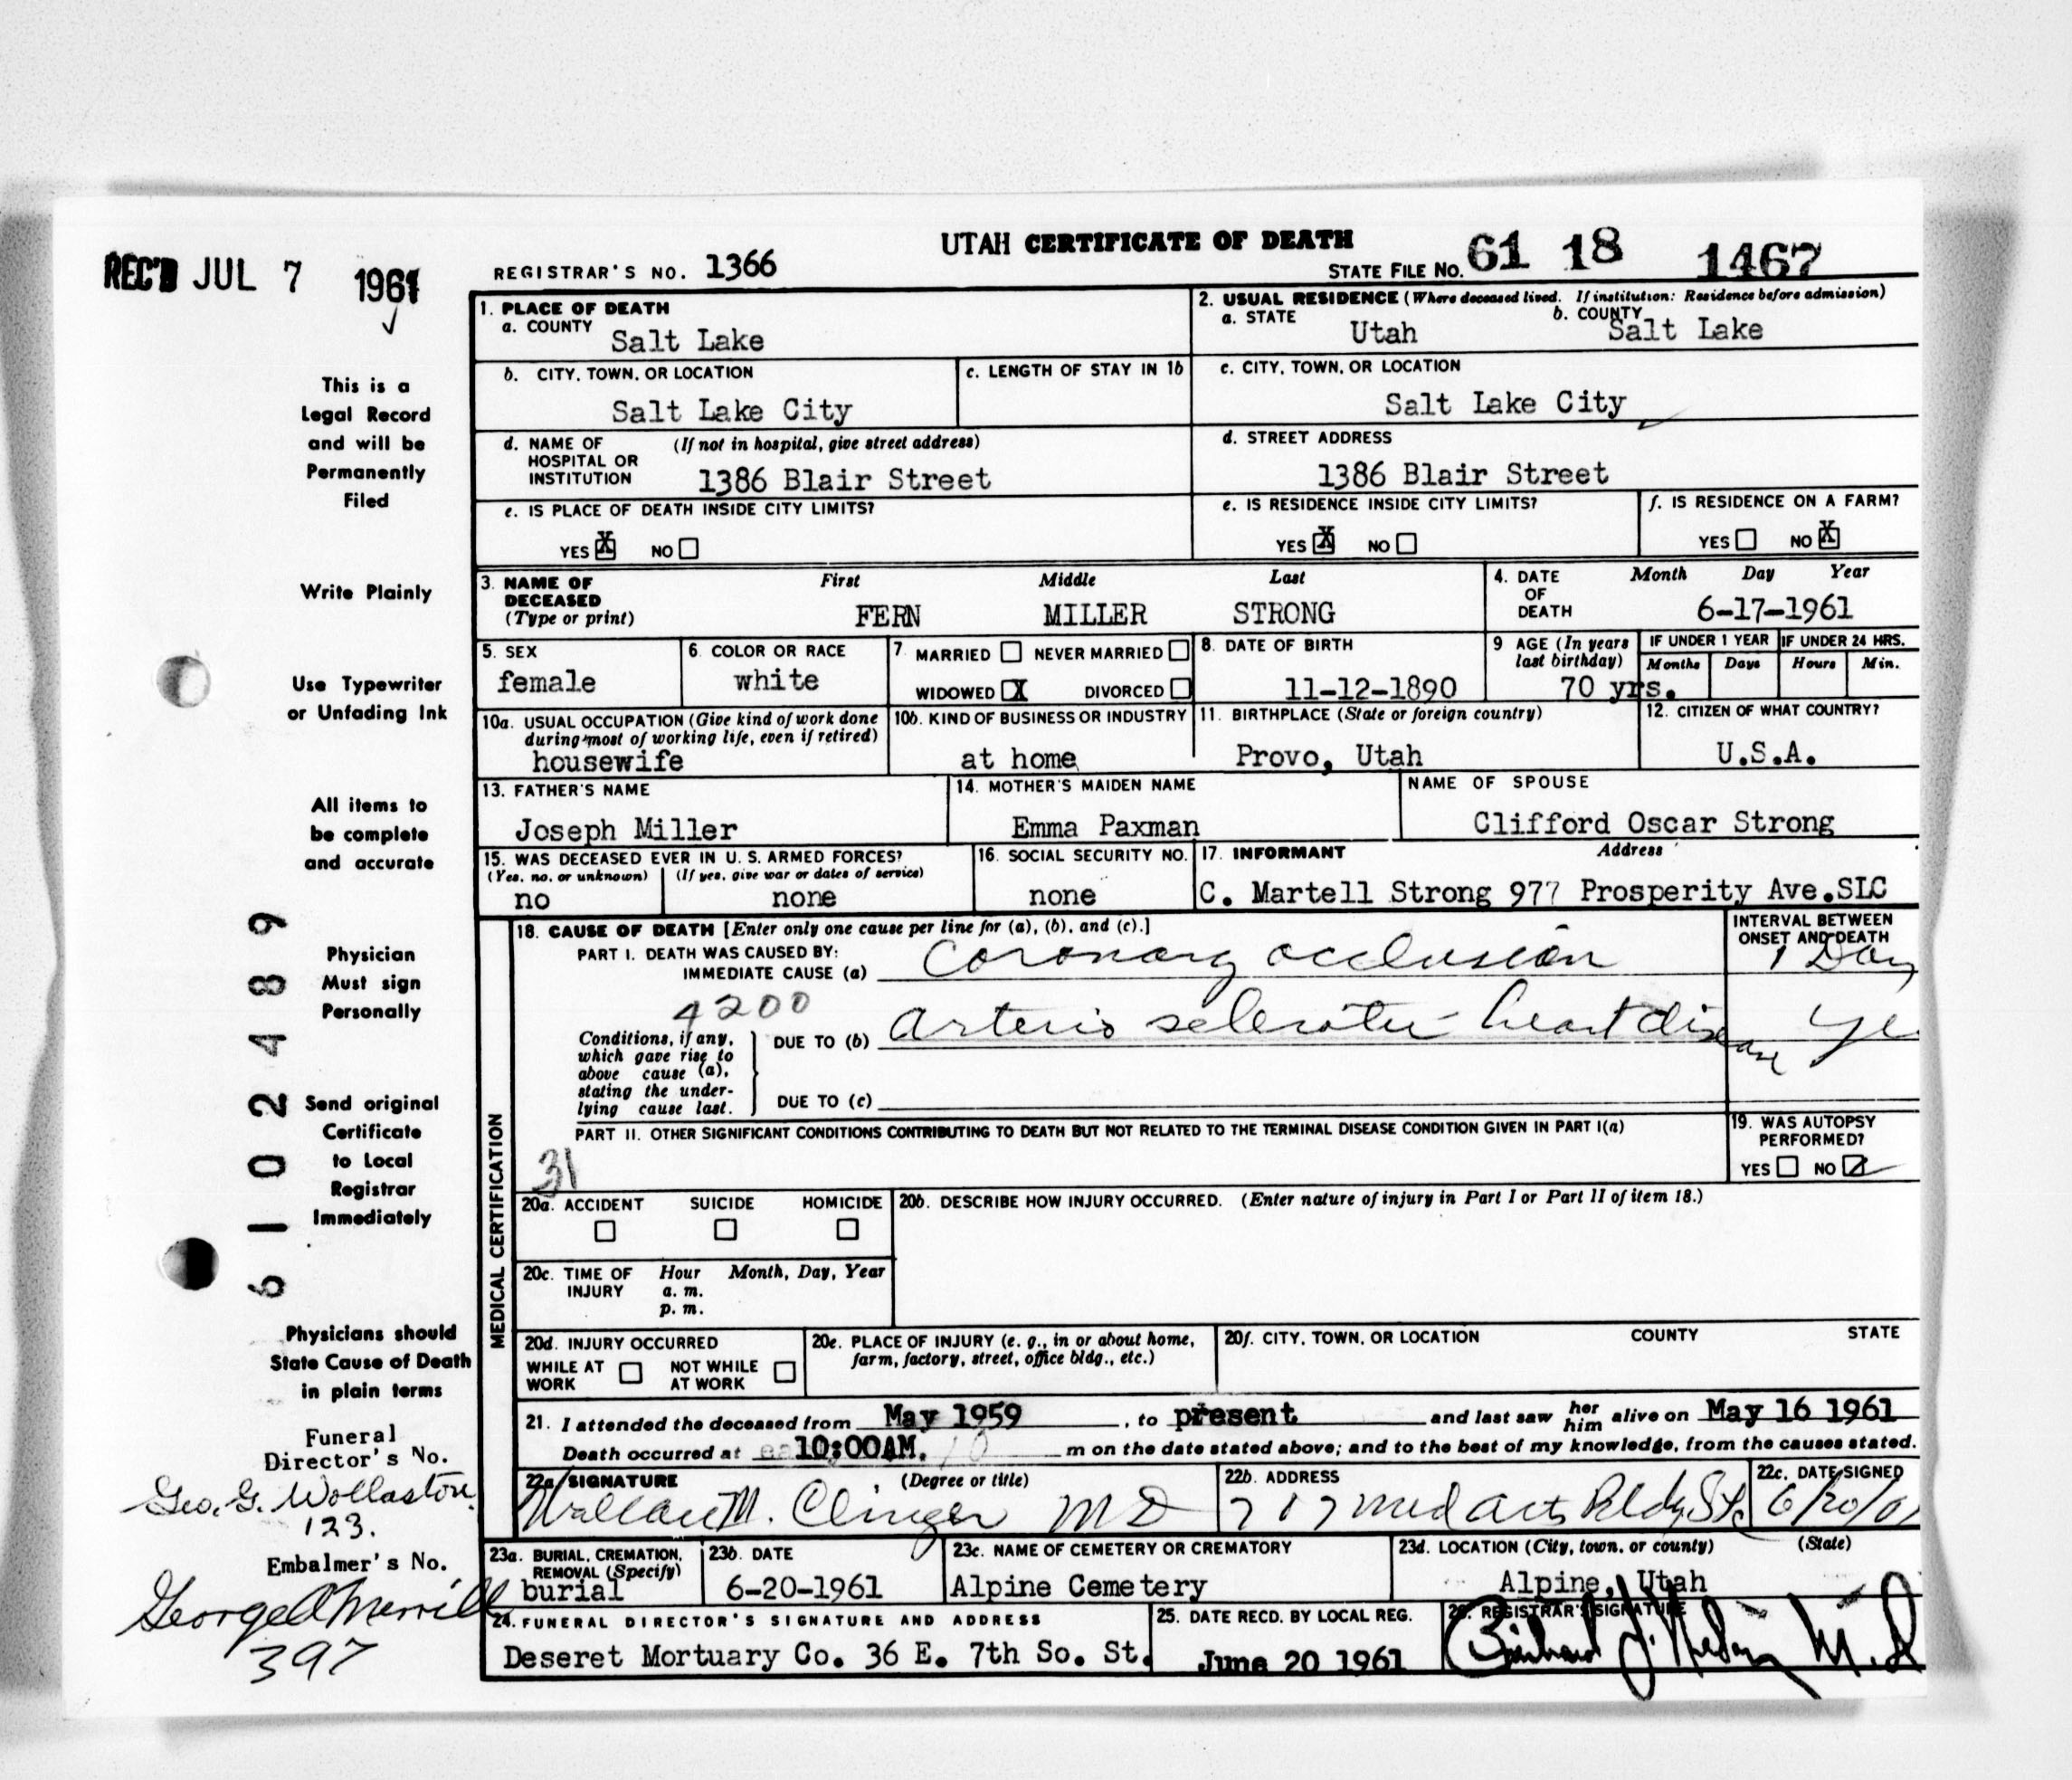 UTAH CERTIFICATE OF DEATH
REC'D JUL 7 1961
REGISTRAR'S NO. 1366
STATE FILE NO. 61 18 1467
This is a
Legal Record
and will be
Permanently
Filed
Write Plainly
Use Typewriter
or Unfading Ink
All items to
be complete
and accurate
Physician
Must sign
Personally
Send original
Certificate
to Local
Registrar
Immediately
Physicians should
State Cause of Death
in plain terms
Funeral
Director's No.
Geo. G. Wollaston
123.
Embalmer's No.
George Merrill
397
6102489
1. PLACE OF DEATH
a. COUNTY Salt Lake
2. USUAL RESIDENCE (Where deceased lived. If institution: Residence before admission)
a. STATE Utah b. COUNTY Salt Lake
b. CITY, TOWN, OR LOCATION Salt Lake City
c. LENGTH OF STAY IN 1b
c. CITY, TOWN, OR LOCATION Salt Lake City
d. NAME OF HOSPITAL OR INSTITUTION (If not in hospital, give street address) 1386 Blair Street
d. STREET ADDRESS 1386 Blair Street
e. IS PLACE OF DEATH INSIDE CITY LIMITS?
YES X NO
e. IS RESIDENCE INSIDE CITY LIMITS?
YES X NO
f. IS RESIDENCE ON A FARM?
YES NO X
3. NAME OF DECEASED (Type or print)
First Middle Last
FERN MILLER STRONG
4. DATE OF DEATH Month Day Year
6-17-1961
5. SEX female
6. COLOR OR RACE white
7. MARRIED NEVER MARRIED
WIDOWED X DIVORCED
8. DATE OF BIRTH 11-12-1890
9 AGE (In years last birthday) 70 yrs.
IF UNDER 1 YEAR Months Days
IF UNDER 24 HRS. Hours Min.
10a. USUAL OCCUPATION (Give kind of work done during most of working life, even if retired) housewife
10b. KIND OF BUSINESS OR INDUSTRY at home
11. BIRTHPLACE (State or foreign country) Provo, Utah
12. CITIZEN OF WHAT COUNTRY? U.S.A.
13. FATHER'S NAME Joseph Miller
14. MOTHER'S MAIDEN NAME Emma Paxman
NAME OF SPOUSE Clifford Oscar Strong
15. WAS DECEASED EVER IN U. S. ARMED FORCES?
(Yes, no, or unknown) (If yes, give war or dates of service)
no none
16. SOCIAL SECURITY NO. none
17. INFORMANT Address
C. Martell Strong 977 Prosperity Ave.SLC
MEDICAL CERTIFICATION
18. CAUSE OF DEATH [Enter only one cause per line for (a), (b), and (c).]
PART I. DEATH WAS CAUSED BY:
IMMEDIATE CAUSE (a) Coronary occlusion
INTERVAL BETWEEN ONSET AND DEATH
1 Day
4200
Conditions, if any, which gave rise to above cause (a), stating the underlying cause last.
DUE TO (b) Arterio sclerotic heart disease
DUE TO (c)
PART II. OTHER SIGNIFICANT CONDITIONS CONTRIBUTING TO DEATH BUT NOT RELATED TO THE TERMINAL DISEASE CONDITION GIVEN IN PART I(a)
31
19. WAS AUTOPSY PERFORMED?
YES NO
20a. ACCIDENT SUICIDE HOMICIDE
20b. DESCRIBE HOW INJURY OCCURRED. (Enter nature of injury in Part I or Part II of item 18.)
20c. TIME OF INJURY Hour Month, Day, Year
a. m.
p. m.
20d. INJURY OCCURRED
WHILE AT WORK NOT WHILE AT WORK
20e. PLACE OF INJURY (e. g., in or about home, farm, factory, street, office bldg., etc.)
20f. CITY, TOWN, OR LOCATION COUNTY STATE
21. I attended the deceased from May 1959, to present and last saw her him alive on May 16 1961
Death occurred at 10:00AM. m on the date stated above; and to the best of my knowledge, from the causes stated.
22a. SIGNATURE (Degree or title)
Wallace M. Clinger MD
22b. ADDRESS
707 Med Arts Bldg
22c. DATE SIGNED
6/20/61
23a. BURIAL, CREMATION, REMOVAL (Specify) burial
23b. DATE 6-20-1961
23c. NAME OF CEMETERY OR CREMATORY Alpine Cemetery
23d. LOCATION (City, town, or county) (State)
Alpine, Utah
24. FUNERAL DIRECTOR'S SIGNATURE AND ADDRESS
Deseret Mortuary Co. 36 E. 7th So. St.
25. DATE RECD. BY LOCAL REG.
June 20 1961
26. REGISTRAR'S SIGNATURE
M.D.